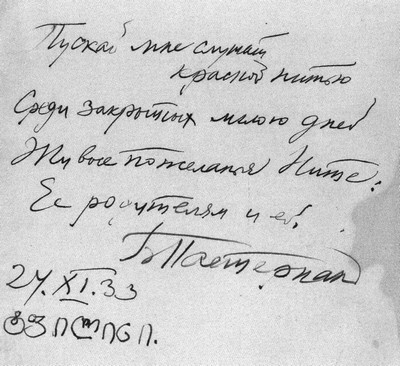 Пускай мне служат
красной нитью
Среди закрытых мглою дней
Живые пожеланья Ните:
Ее родителям и ей.
БПастернак
27.XI.33
ტფილისი.